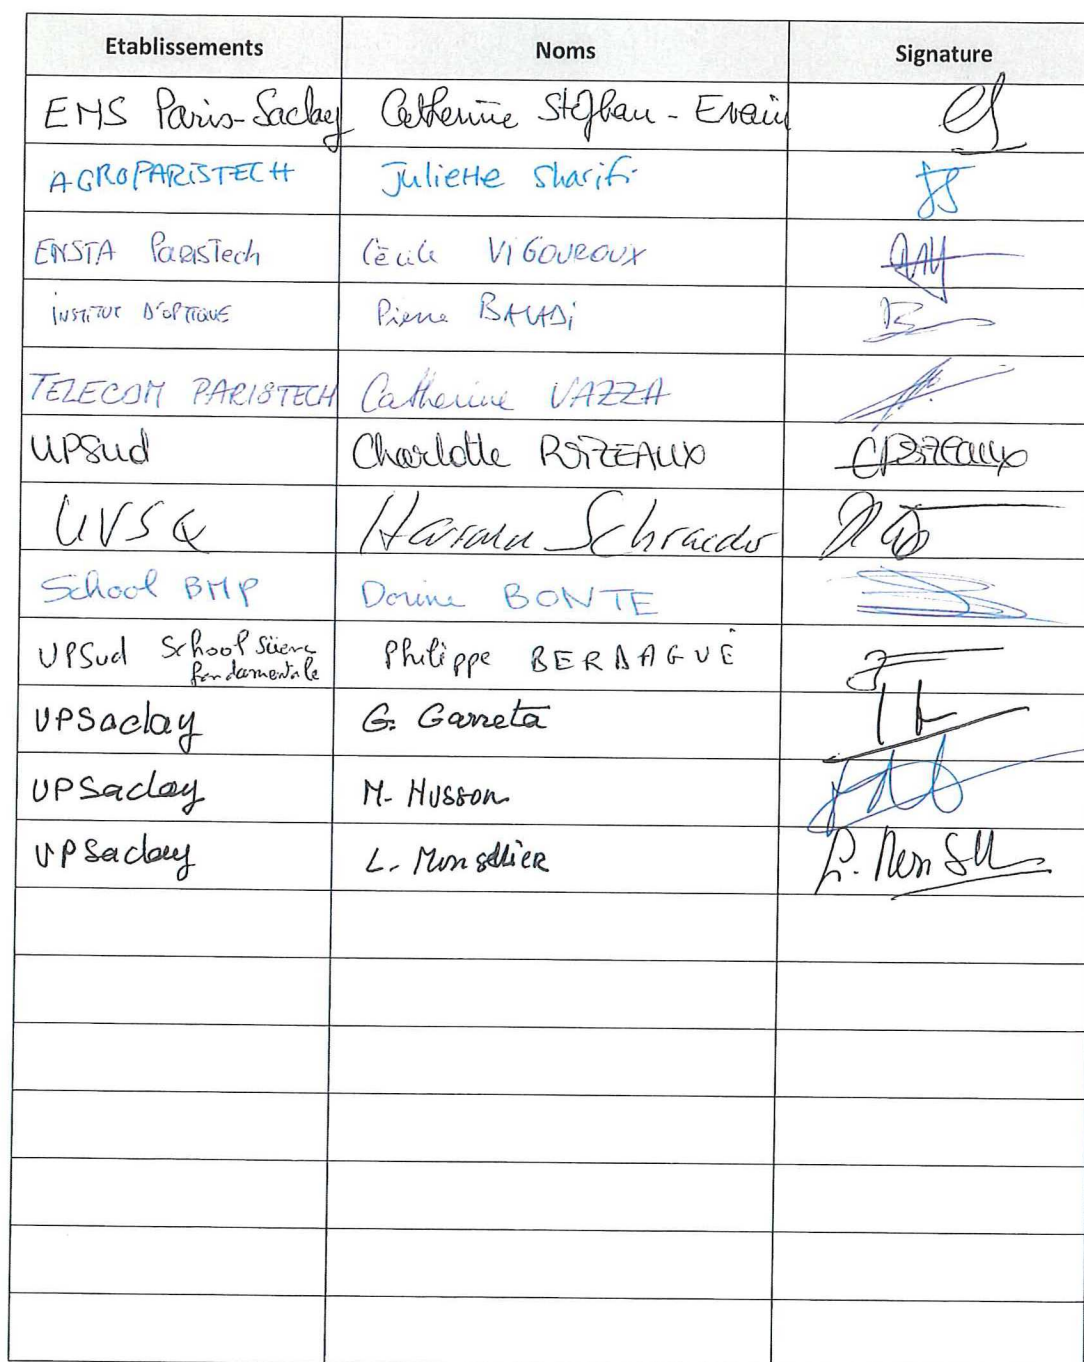 Etablissements Noms Signature
ENS Paris-Saclay Catherine Stephan-Evain
AGROPARISTECH Juliette Sharifi
ENSTA ParisTech Cécile VIGOUROUX
INSTITUT D'OPTIQUE Pierre BALADi
TELECOM PARISTECH Catherine VAZZA
UPSud Charlotte
UVSQ Schraeder
School BMP Dorine BONTE
UPSud School Science
fondamentale Philippe BERDAGUÉ
UPSaclay G. Garreta
UPSaclay M. Husson
UPSaclay L. Monsellier